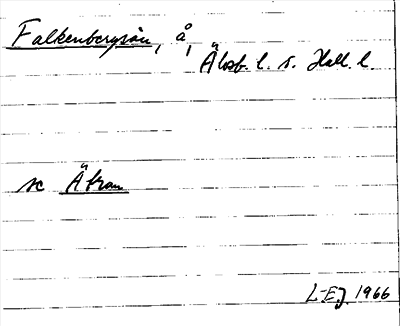 Falkenbergsån, å,
Älvsb. l. o. Hall. l.
se Ätran
L-E.J. 1966